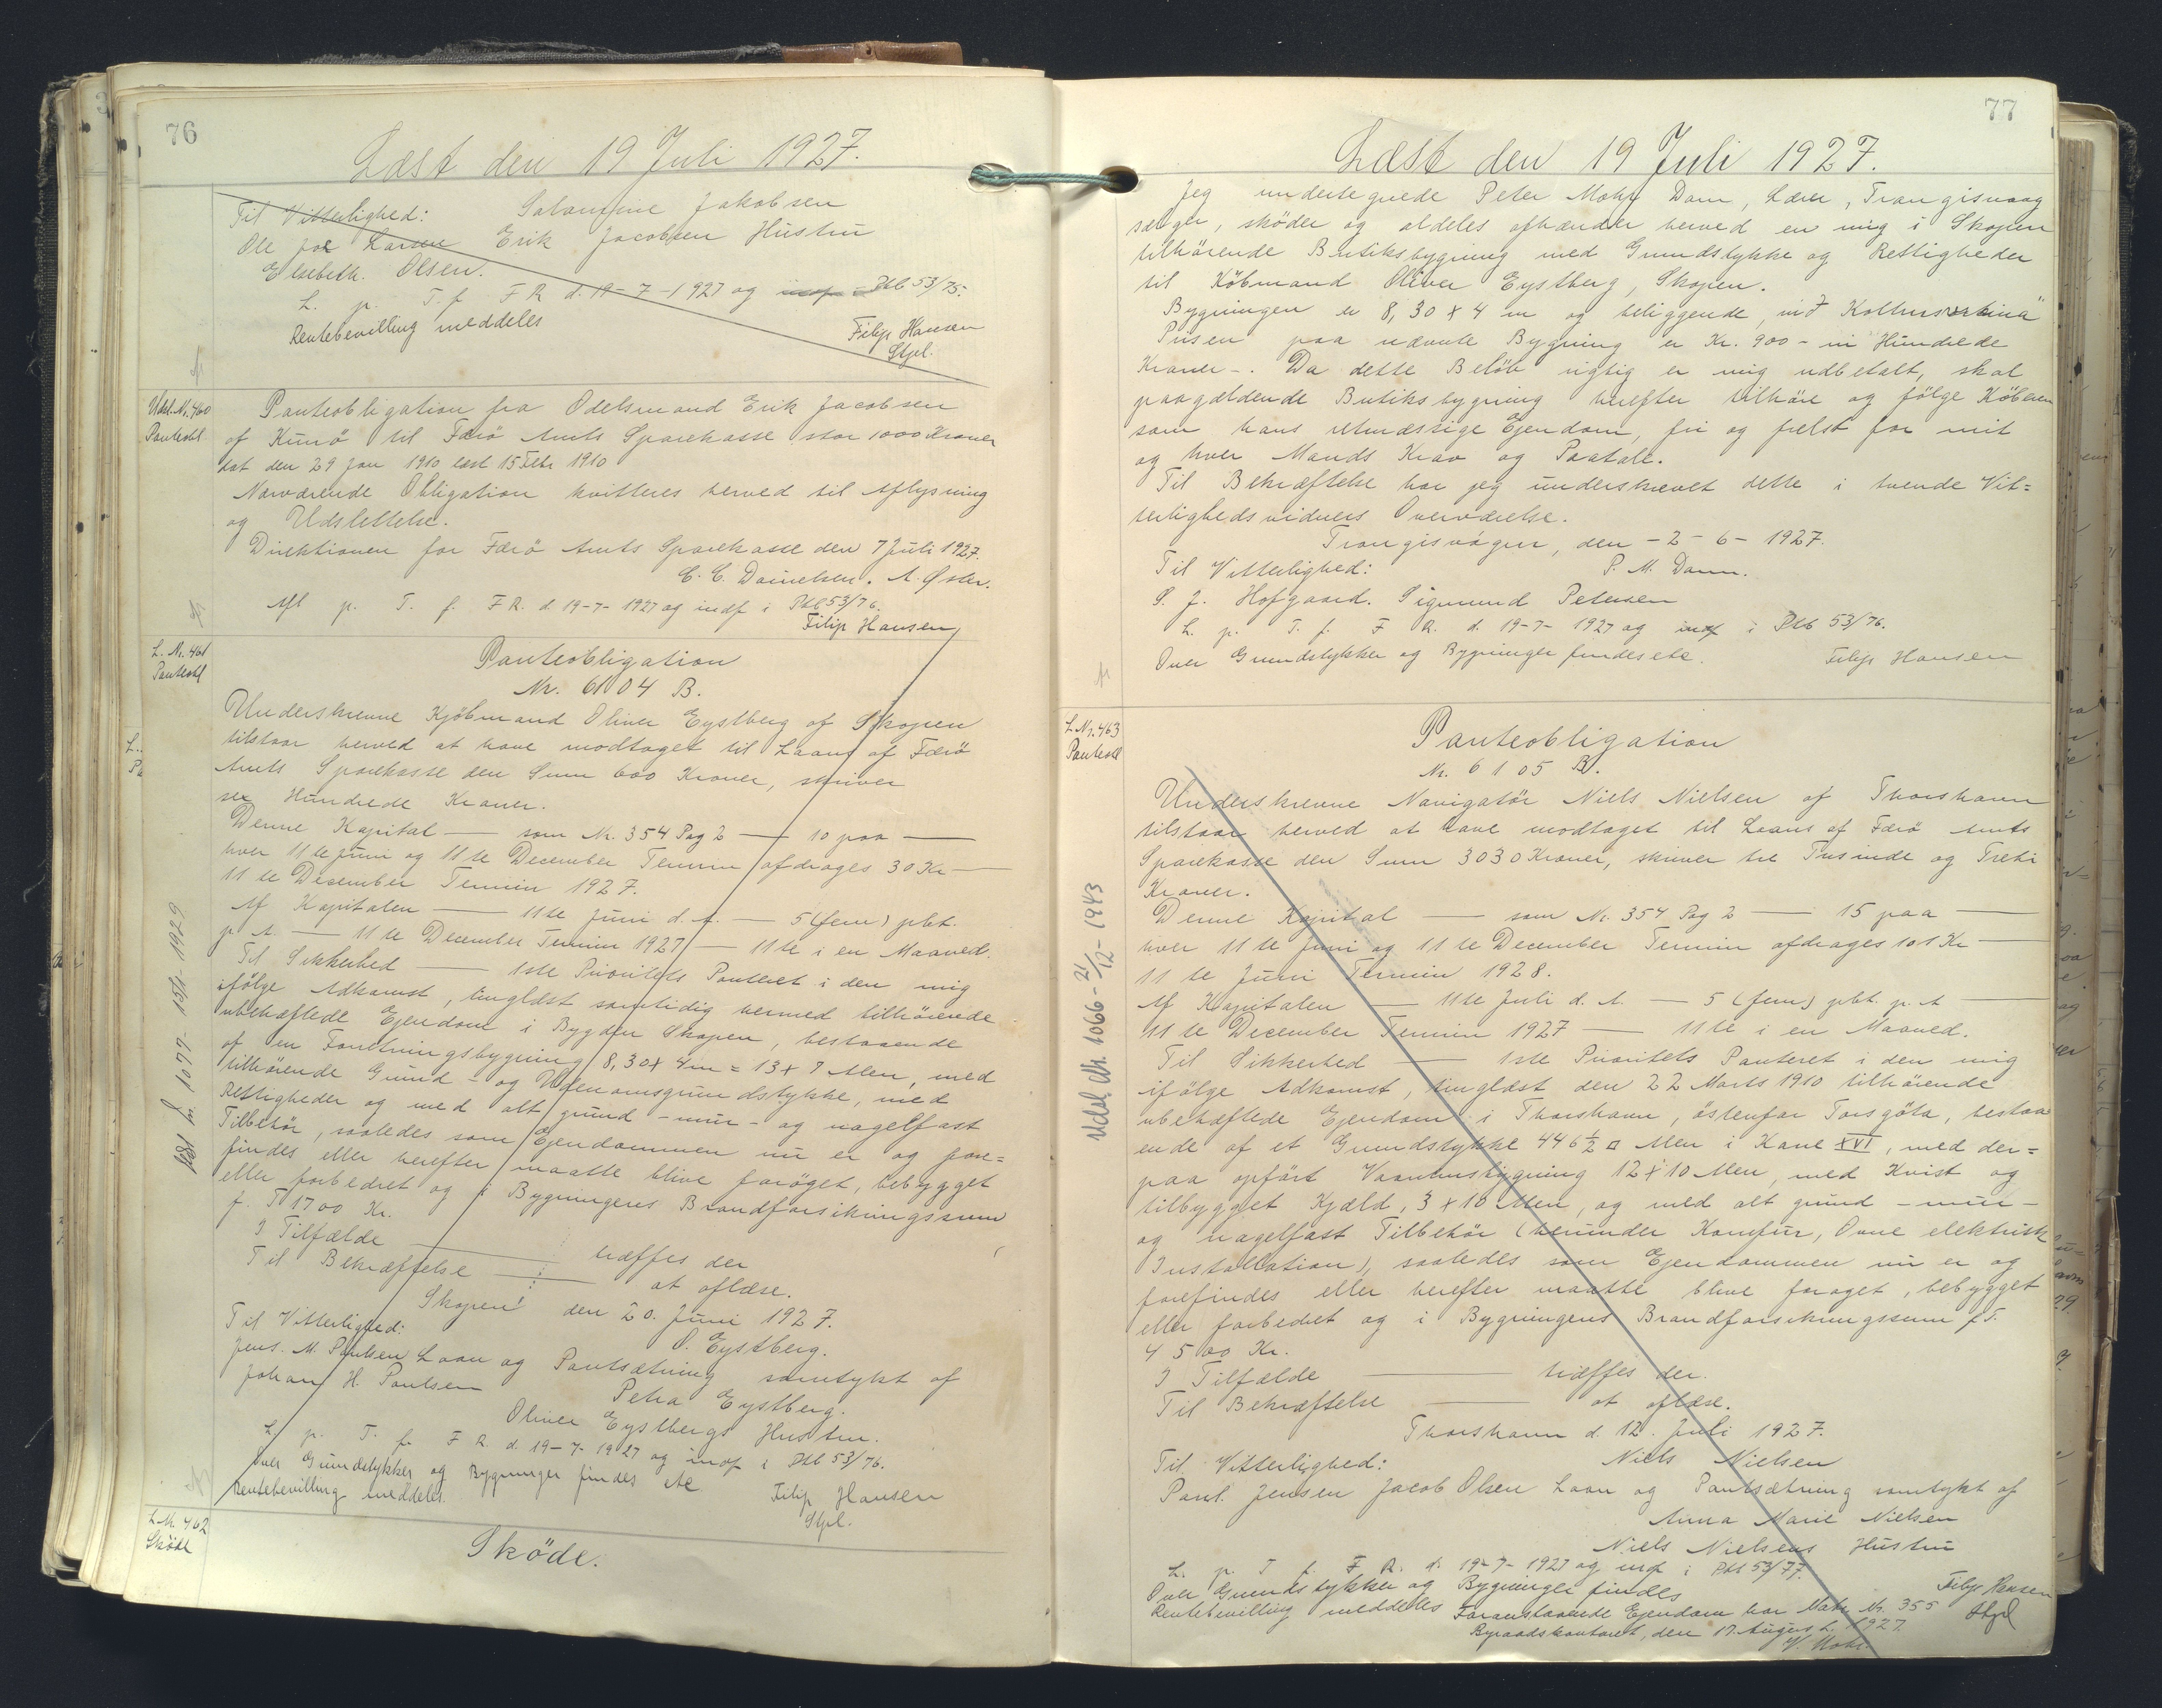 76
Læst den 19 Juli 1927.
Til Vitterlighed: Salomine Jakobsen
Ole Joe Larsen Erik Jacobsen Hustru
Elsebeth. Olsen.
L. p. T. f. F R d. 19-7-1927 og indf i Ptb 53/75.
Rentebevilling meddeles
Filip Hansen
Stpl.
Udsl. Nr. 460
Panteobl
Panteobligation fra Odelsmand Erik Jacobsen
af Kunö til Færö Amts Sparekasse stor 1000 Kroner
dat den 29 Jan 1910 læst 15 Febr 1910
Nærværende Obligation kvitteres herved til Aflysning
og Udslettelse.
Direktionen for Færö Amts Sparekasse den 7 Juli 1927.
C. C. Danielsen. A. Øster.
Afl p. T. f. F R. d. 19-7-1927 og indf i Ptb 53/76.
Filip Hansen
L. Nr. 461
Panteobl
Panteobligation
Nr. 6104 B.
Underskrevne Kjöbmand Oliver Eystberg af Skopen
tilstaar herved at have modtaget til Laans af Færö
Amts Sparekasse den Sum 600 Kroner, skriver
sex Hundrede Kroner.
Denne Kapital — som Nr. 354 Pag 2 — 10 paa —
hver 11te Juni og 11te December Termin afdrages 30 Kr —
11te December Termin 1927.
Af Kapitalen — 11te Juni d. A. — 5 (fem) pCt.
p A. — 11te December Termin 1927 — 11te i en Maaned.
Til Sikkerhed — 1ste Prioritets Panteret i den mig
ifölge Adkomst, tinglæst samtidig hermed tilhörende
ubehæftede Ejendom i Bygden Skopen, bestaaende
af en Forretningsbygning 8,30 x 4 m = 13 x 7 Alen, med
tilhörende Grund- og Udenomsgrundstykke, med
Rettigheder og med alt grund-mur- og nagelfast
Tilbehör, saaledes som Ejendommen nu er og fore=
findes eller herefter maatte blive foröget, bebygget
eller forbedret og i Bygningens Brandforsikringssum
f. T. 1700 Kr.
I Tilfælde — træffes der
Til Bekræftelse — at aflæse.
Skopen den 20. Juni 1927.
Til Vitterlighed: O. Eystberg.
Jens. M. Poulsen Laan og Pantsætning samtykt af
Johan H. Poulsen Petra Eystberg.
Oliver Eystbergs Hustru.
L p. T. f. F R. d. 19-7-1927 og indf i Ptb 53/76.
Over Grundstykker og Bygninger findes etc
Rentebevilling meddeles.
Filip Hansen
Stpl.
L. Nr. 462
Sköde
Sköde.
77
Læst den 19 Juli 1927.
Jeg undertegnede Peter Mohr Dam, Lærer, Trangisvaag
sælger, sköder og aldeles afhænder herved en mig i Skopen
tilhörende Butiksbygning med Grundstykke og Rettigheder
til Köbmand Oliver Eystberg, Skopen.
Bygningen er 8,30 x 4 m og beliggende
Prisen paa nævnte Bygning er Kr. 900 - ni Hundrede
Kroner -. Da dette Belöb rigtig er mig udbetalt, skal
paagældende Butiksbygning herefter tilhöre og fölge Köberen
som hans retmæssige Ejendom, fri og frelst for mit
og hver Mands Krav og Paatale.
Til Bekræftelse har jeg underskrevet dette i tvende Vit=
terlighedsvidners Overværelse.
Trongisvágur, den -2-6-1927.
Til Vitterlighed: P. M. Dam.
S. J. Hofgaard. Sigmund Petersen
L. p. T. f. F R. d. 19-7-1927 og indf i Ptb 53/76.
Over Grundstykker og Bygninger findes etc.
Filip Hansen
L Nr. 463
Panteobl
Panteobligation
Nr. 6105 B.
Underskrevne Navigatör Niels Nielsen af Thorshavn
tilstaar herved at have modtaget til Laans af Færö Amts
Sparekasse den Sum 3030 Kroner, skriver tre Tusinde og Treti
Kroner.
Denne Kapital — som Nr. 354 Pag 2 — 15 paa —
hver 11te Juni og 11te December Termin afdrages 101 Kr —
11te Juni Termin 1928.
Af Kapitalen — 11te Juli d. A. — 5 (fem) pCt. p. A —
11te December Termin 1927 — 11te i en Maaned.
Til Sikkerhed — 1ste Prioritets Panteret i den mig
ifölge Adkomst, tinglæst den 22 Marts 1910 tilhörende
ubehæftede Ejendom i Thorshavn, östenfor Torsgöta, bestaa
ende af et Grundstykke 446 1/2 □ Alen i Kane XVI, med der=
paa opfört Vaaningsbygning 12 x 10 Alen, med Kvist og
tilbygget Kjæld, 3 x 10 Alen, og med alt grund-mur-
og nagelfast Tilbehör (herunder Komfur, Ovne elektrisk
Installation), saaledes som Ejendommen nu er og
forefindes eller herefter maatte blive foröget, bebygget
eller forbedret og i Bygningens Brandforsikringssum f. T.
4500 Kr.
I Tilfælde — træffes der.
Til Bekræftelse — at aflæse.
Thorshavn d. 12. Juli 1927.
Til Vitterlighed: Niels Nielsen
Poul. Jensen Jacob Olsen Laan og Pantsætning samtykt af
Anna Marie Nielsen
Niels Nielsens Hustru
L. p. T f. F R. d. 19-7-1927 og indf i Ptb 53/77.
Over Grundstykker og Bygninger findes
Rentebevilling meddeles
Filip Hansen
Stpl
Foranstaaende Ejendom har Matr. Nr. 355
Byraadskontoret, den 17. August 1927.
Udsl. Nr. 1066 - 21/12 - 1943